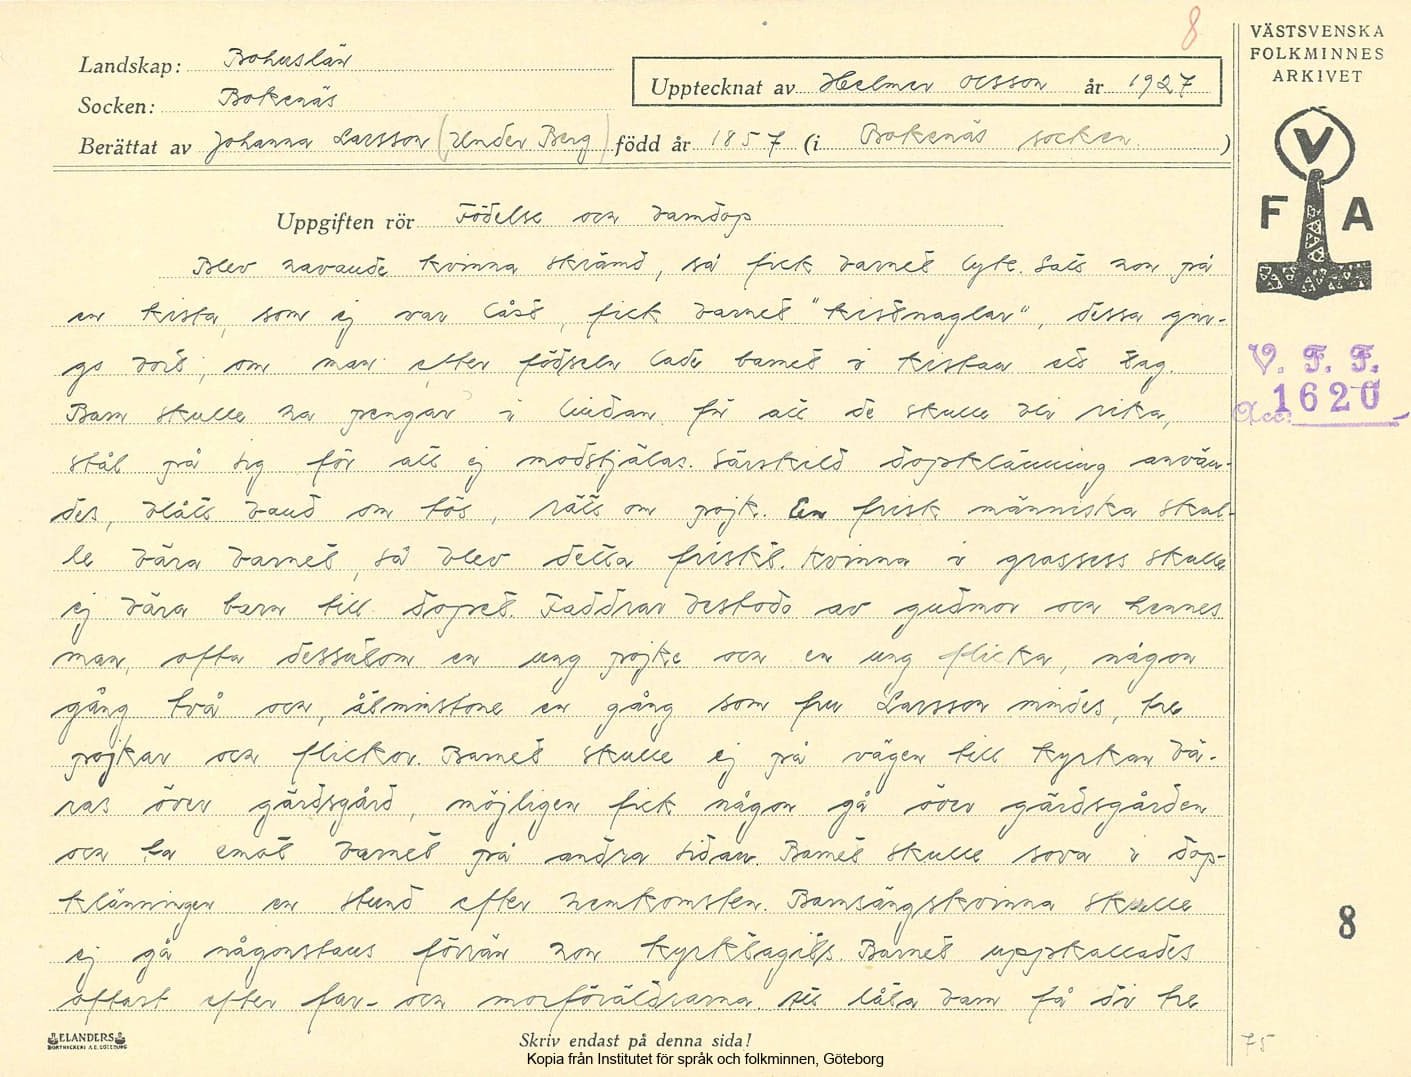 8
VÄSTSVENSKA
FOLKMINNES
ARKIVET
Landskap: Bohuslän
Socken: Bokenäs
Upptecknat av Helmer Olsson år 1927
Berättat av Johanna Larsson (Under Berg) född år 1857 (i Bokenäs socken.)
V
F A
Uppgiften rör Födelse och barndop
Blev havande kvinna skrämd, så fick barnet lyte. Satt hon på
en kista, som ej var låst, fick barnet "kistnaglar", dessa gin-
go bort, om man efter födseln lade barnet i kistan ett tag.
Barn skulle ha pengar i lindan för att de skulle bli rika,
stål på sig för att ej modstjälas. Särskild dopklänning använ-
des, blått band om tös, rött om pojk. En frisk människa skul-
le bära barnet, så blev detta friskt. Kvinna i grossess skulle
ej bära barn till dopet. Faddrar bestodo av gudmor och hennes
man, ofta dessutom en ung pojke och en ung flicka, någon
gång två och, åtminstone en gång som fru Larsson mindes, tre
pojkar och flickor. Barnet skulle ej på vägen till kyrkan bä-
ras över gärdsgård, möjligen fick någon gå över gärdsgården
och ta emot barnet på andra sidan. Barnet skulle sova i dop-
klänningen en stund efter hemkomsten. Barnsängskvinna skulle
ej gå någonstans förrän hon kyrktagits. Barnet uppkallades
oftast efter far- och morföräldrarna. Att låta barn få di tre
V. F. F.
Acc: 1620
8
75
ELANDERS
BOKTRYCKERI A.B. GÖTEBORG
Skriv endast på denna sida!
Kopia från Institutet för språk och folkminnen, Göteborg